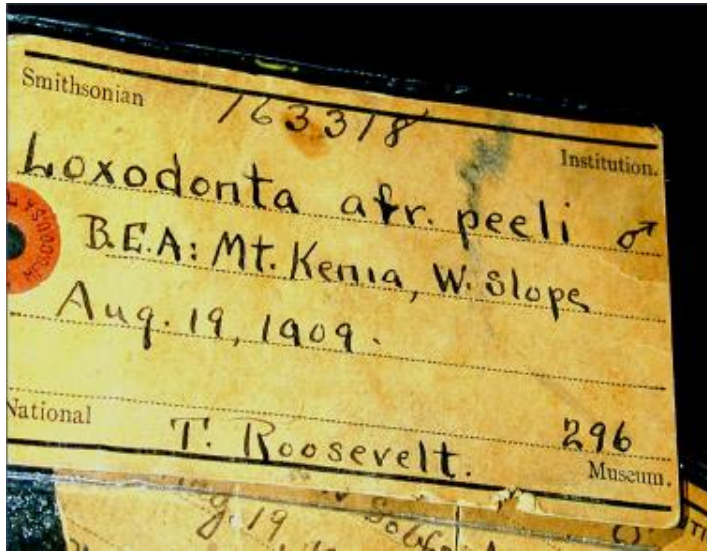 Smithsonian 163318 Institution.
Loxodonta afr. peeli ♂
B.E.A: Mt. Kenia, W. Slope
Aug. 19, 1909.
National T. Roosevelt. 296 Museum.
19